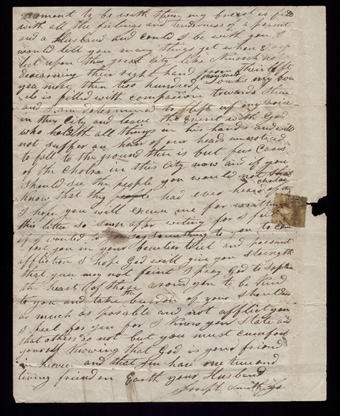 moment to be with them my breast is filld
with all the feelings and tenderness of a parent
and a Husband and could I be with you I
would tell you many things yet when I
upon this great city like Ninevah not
desearning their right hand from their left
yea more then two hundred thousand souls my bow
is filled with compasion towards them
and I am determined to lift up my voice
in this City and leave the Event with God
who holdeth all things in his hands and will
not suffer an hair of our heads unnoticed
to fall to the ground there is but few Cases
of the cholra in this city now and if you
should see the people you would not
know that they had ever heard of the cholra
I hope you will excuse me for writting
this letter so soon after writing for I feel
as if I wanted to say something to you to com
fort you in your beculier triel and presant
affliction I hope God will give you strength
that you may not faint I pray God to soften
the hearts of those around you to be kind
to you and take burdon of your shoulders
as much as posable and not afflict you
I feel for you for I know your state and
that others do not but you must cumfort
yourself knowing that God is your friend
in heaven and that you have one true and
living friend on Earth your Husband
Joseph Smith Jr